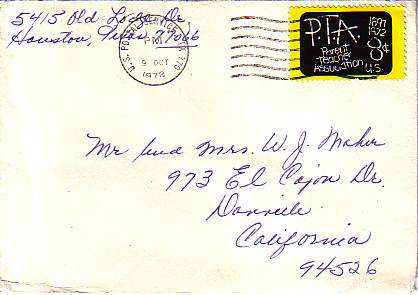 5415 Old Lodge Dr.
Houston, Texas 77066
U.S. POSTAL SERVICE TX 770
PM
9 OCT
1972
P.T.A.
1897
1972
Parent
Teacher
Association
8¢
U.S.
Mr and Mrs. W. J. Maher
973 El Cajon Dr.
Danville
California
94526